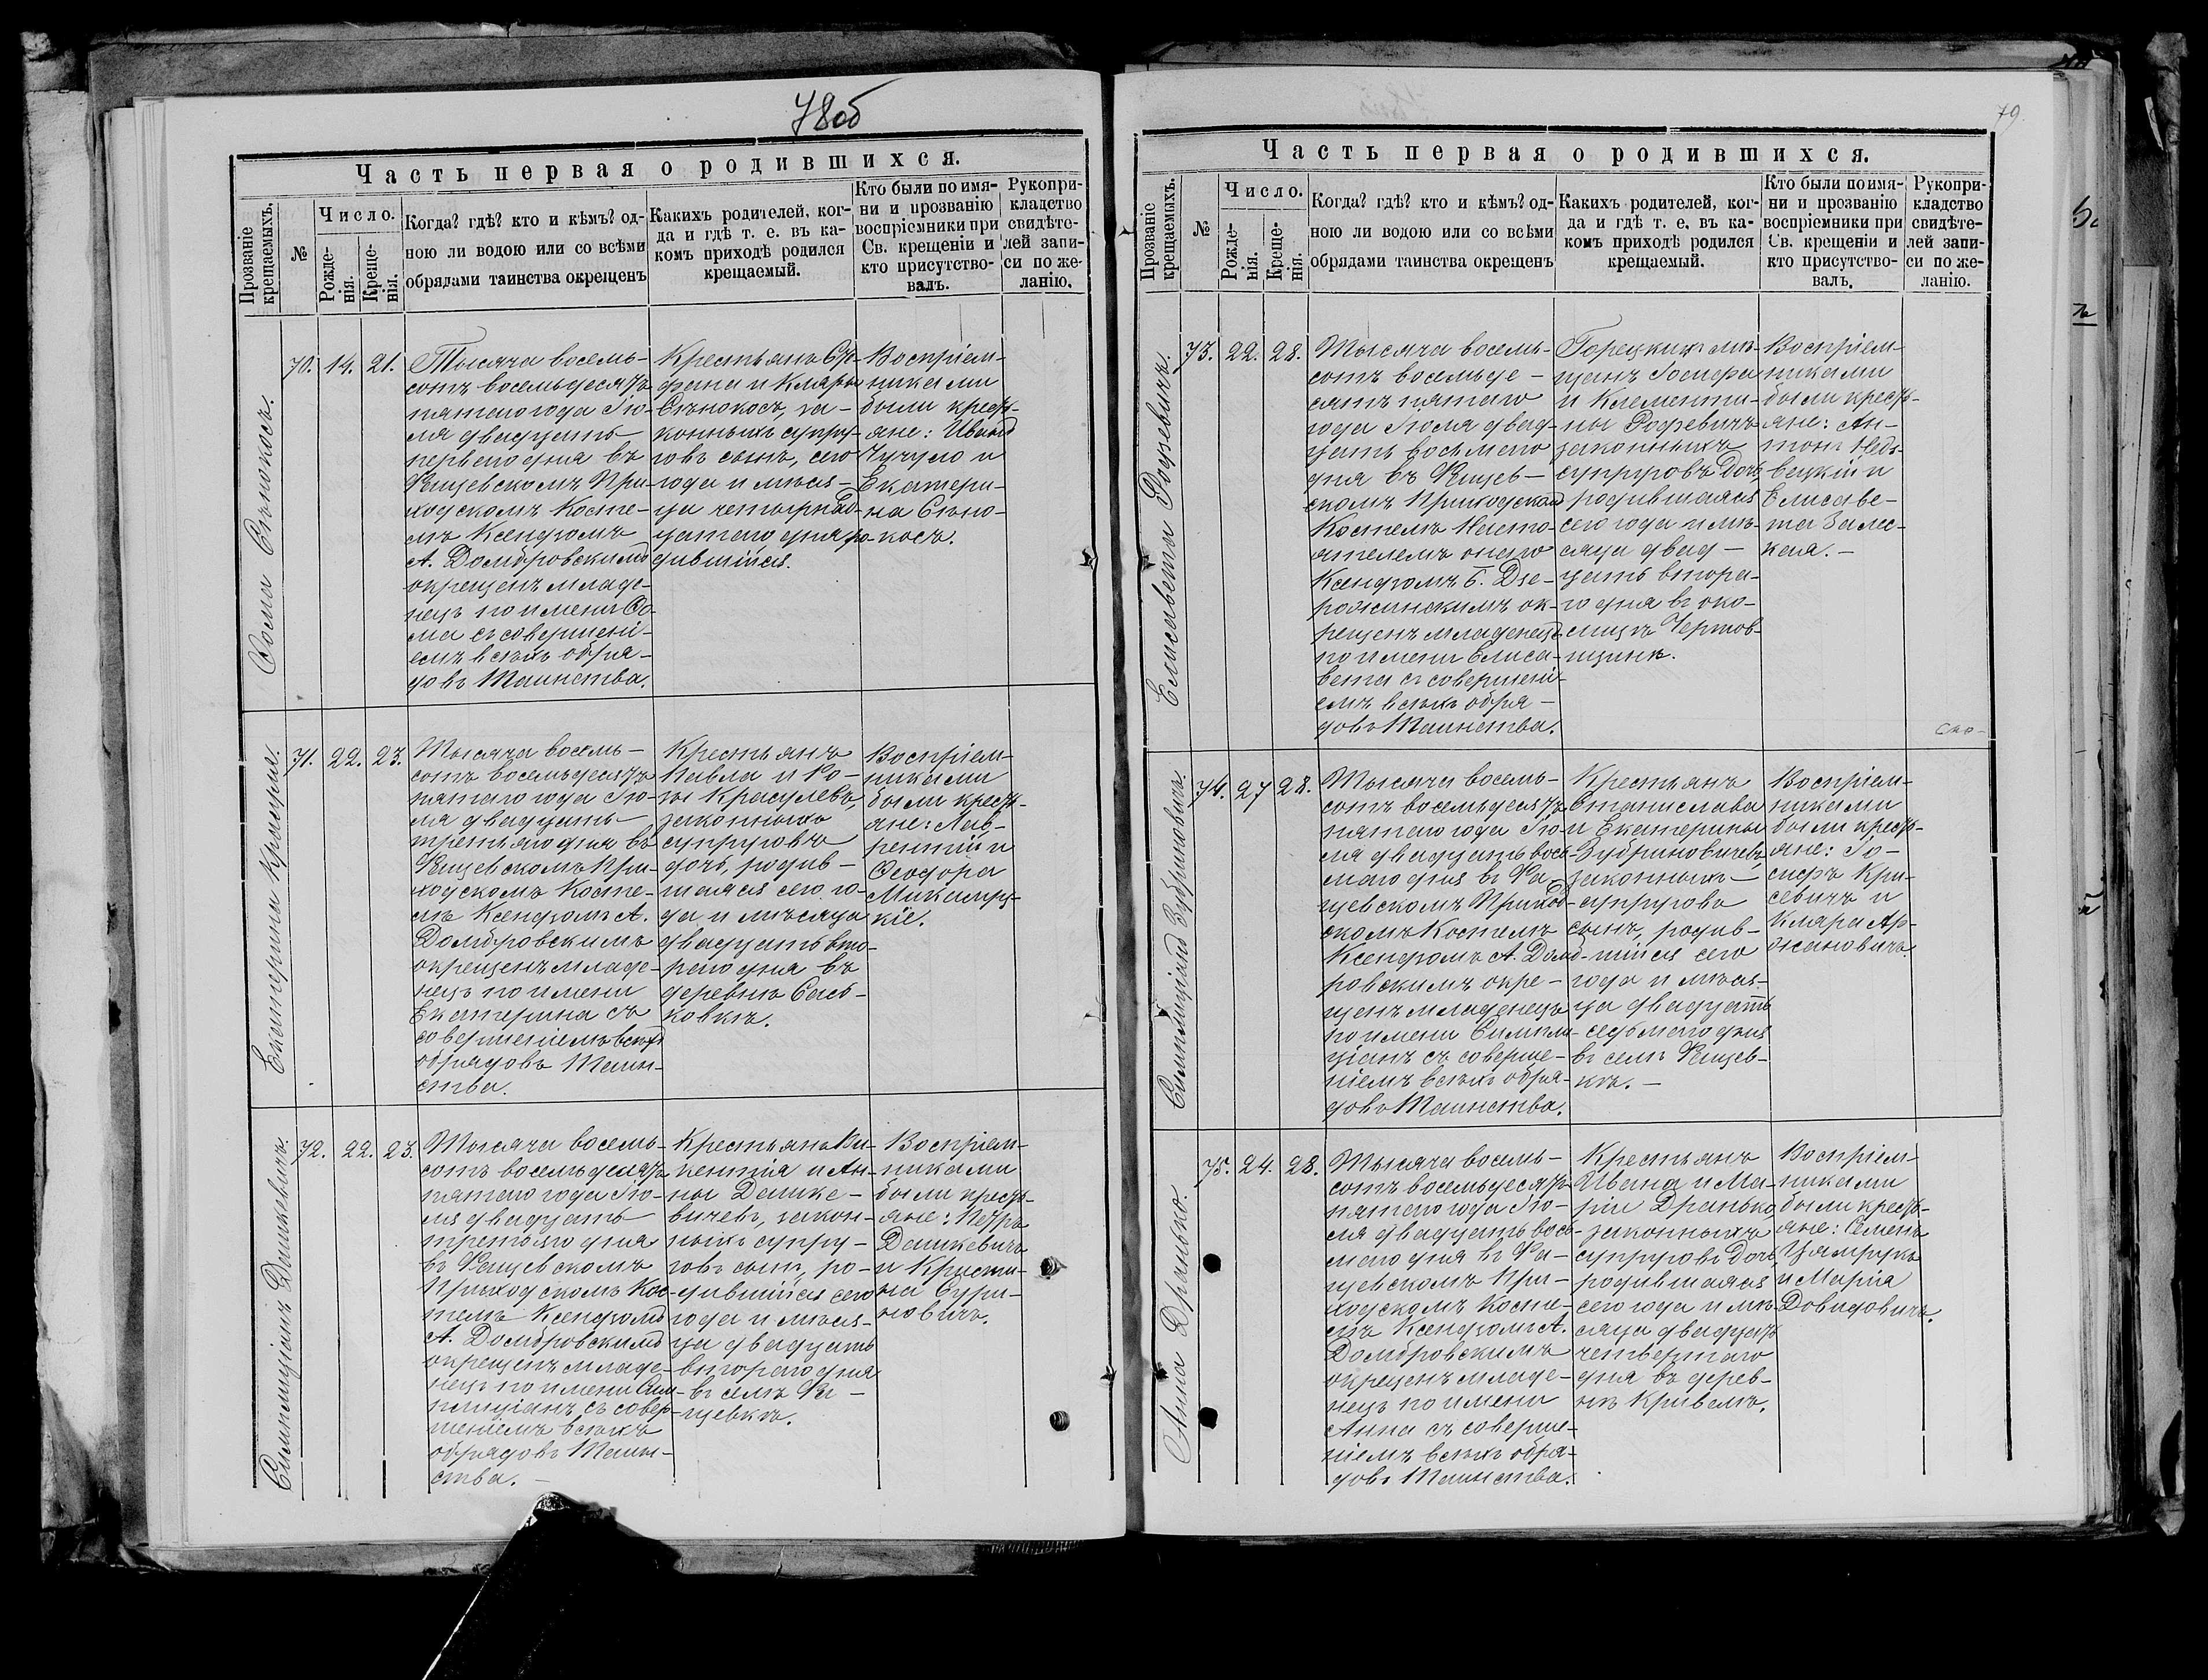 78об
Часть первая о родившихся.
Прозваніе крещаемыхъ.
№
Число.
Рожде-
нія.
Креще-
нія.
Когда? гдѣ? кто и кѣмъ? од-
ною ли водою или со всѣми
обрядами таинства окрещенъ
Какихъ родителей, ког-
да и гдѣ т. е. въ ка-
комъ приходѣ родился
крещаемый.
Кто были по имя-
ни и прозванію
воспріемники при
Св. крещеніи и
кто присутство-
валъ.
Рукопри-
кладство
свидѣте-
лей запи-
си по же-
ланію.
Ѳома Сѣнокосъ.
70. 14. 21.
Тысяча восемь-
сотъ восемьдесятъ
пятаго года Ію-
ля двадцать
перваго дня въ
Фащевскомъ При-
ходскомъ Косте-
лѣ Ксендзомъ
А. Домбровскимъ
окрещенъ младе-
нецъ по имени Ѳо-
ма съ совершені-
емъ всѣхъ обря-
довъ Таинства.
Крестьянъ Сте-
фана и Клары
Сѣнокосъ, за-
конныхъ супру-
говъ сынъ, сего
года и мѣся-
ца четырнад-
цатаго дня ро-
дившійся.
Воспріем-
никами
были кресть-
яне: Иванъ
Чучуло и
Екатери-
на Сѣно-
косъ.
Екатерина Красуля.
71. 22. 23.
Тысяча восемь-
сотъ восемьдесятъ
пятаго года Ію-
ля двадцать
третьяго дня въ
Фащевскомъ При-
ходскомъ Косте-
лѣ Ксендзомъ А.
Домбровскимъ
окрещенъ младе-
нецъ по имени
Екатерина съ
совершеніемъ всѣхъ
обрядовъ Таин-
ства.
Крестьянъ
Павла и Ро-
зы Красулевъ,
законныхъ
супруговъ
дочь, родив-
шаяся сего го-
да и мѣсяца
двадцать вто-
раго дня въ
деревнѣ Сась-
ковкѣ.
Воспріем-
никами
были кресть-
яне: Лав-
рентій и
Ѳеодора
Микитру-
кіе.
Симплиціанъ Дашкевичъ.
72. 22. 23.
Тысяча восемь-
сотъ восемьдесятъ
пятаго года Ію-
ля двадцать
третьяго дня
въ Фащевскомъ
Приходскомъ Кос-
телѣ Ксендзомъ
А. Домбровскимъ
окрещенъ младе-
нецъ по имени Сим-
плиціанъ съ совер-
шеніемъ всѣхъ
обрядовъ Таин-
ства.
Крестьянъ Ви-
кентія и Ан-
ны Дашке-
вичевъ, закон-
ныхъ супру-
говъ сынъ, ро-
дившійся сего
года и мѣся-
ца двадцать
втораго дня
въ селѣ Фа-
щевкѣ.
Воспріем-
никами
были кресть-
яне: Петръ
Дашкевичъ
и Кристи-
на Бури-
новичъ.
79.
Часть первая о родившихся.
Прозваніе крещаемыхъ.
№
Число.
Рожде-
нія.
Креще-
нія.
Когда? гдѣ? кто и кѣмъ? од-
ною ли водою или со всѣми
обрядами таинства окрещенъ
Какихъ родителей, ког-
да и гдѣ т. е. въ ка-
комъ приходѣ родился
крещаемый.
Кто были по имя-
ни и прозванію
воспріемники при
Св. крещеніи и
кто присутство-
валъ.
Рукопри-
кладство
свидѣте-
лей запи-
си по же-
ланію.
Елисавета Родзевичъ.
73. 22. 28.
Тысяча восемь-
сотъ восемьде-
сятъ пятаго
года Іюля двад-
цать восьмаго
дня въ Фащев-
скомъ Приходскомъ
Костелѣ Насто-
ятелемъ онаго
Ксендзомъ Б. Дзе-
рожинскимъ ок-
рещенъ младенецъ
по имени Елиса-
вета съ совершені-
емъ всѣхъ обря-
довъ Таинства.
Горецкихъ мѣ-
щанъ Іосифа
и Клементи-
ны Родзевичъ
законныхъ
супруговъ дочь,
родившаяся
сего года и мѣ-
сяца двад-
цать втора-
го дня въ око-
лицѣ Чертов-
щинѣ.
Воспріем-
никами
были кресть-
яне: Ан-
тонъ
и
Елисаве-
та Залес-
кая.-
Симплиціанъ Зубриновичъ.
74. 27 28.
Тысяча восемь-
сотъ восемьдесятъ
пятаго года Ію-
ля двадцать вось-
маго дня въ Фа-
щевскомъ Приход-
скомъ Костелѣ
Ксендзомъ А. Домб-
ровскимъ окре-
щенъ младенецъ
по имени Симпли-
ціанъ съ соверше-
ніемъ всѣхъ обря-
довъ Таинства.
Крестьянъ
Станислава
и Екатерины
Зубриновичевъ,
законныхъ
супруговъ
сынъ, родив-
шійся сего
года и мѣся-
ца двадцать
седьмаго дня
въ селѣ Фащев-
кѣ.-
Воспріем-
никами
были кресть-
яне: Іо-
сифъ Кри-
севичъ и
Клара Ар-
жановичъ.
Анна Дранько.
75. 24. 28.
Тысяча восемь-
сотъ восемьдесятъ
пятаго года Ію-
ля двадцать вось-
маго дня въ Фа-
щевскомъ При-
ходскомъ Косте-
лѣ Ксендзомъ А.
Домбровскимъ
окрещенъ младе-
нецъ по имени
Анна съ соверше-
ніемъ всѣхъ обря-
довъ Таинства.
Крестьянъ
Ивана и Ма-
ріи Дранько
законныхъ
супруговъ дочь,
родившаяся
сего года и мѣ-
сяца двадцать
четвертаго
дня въ дерев-
нѣ Кривелѣ.
Воспріем-
никами
были кресть-
яне: Семенъ
Цямрукъ
и Марія
Довидовичъ.